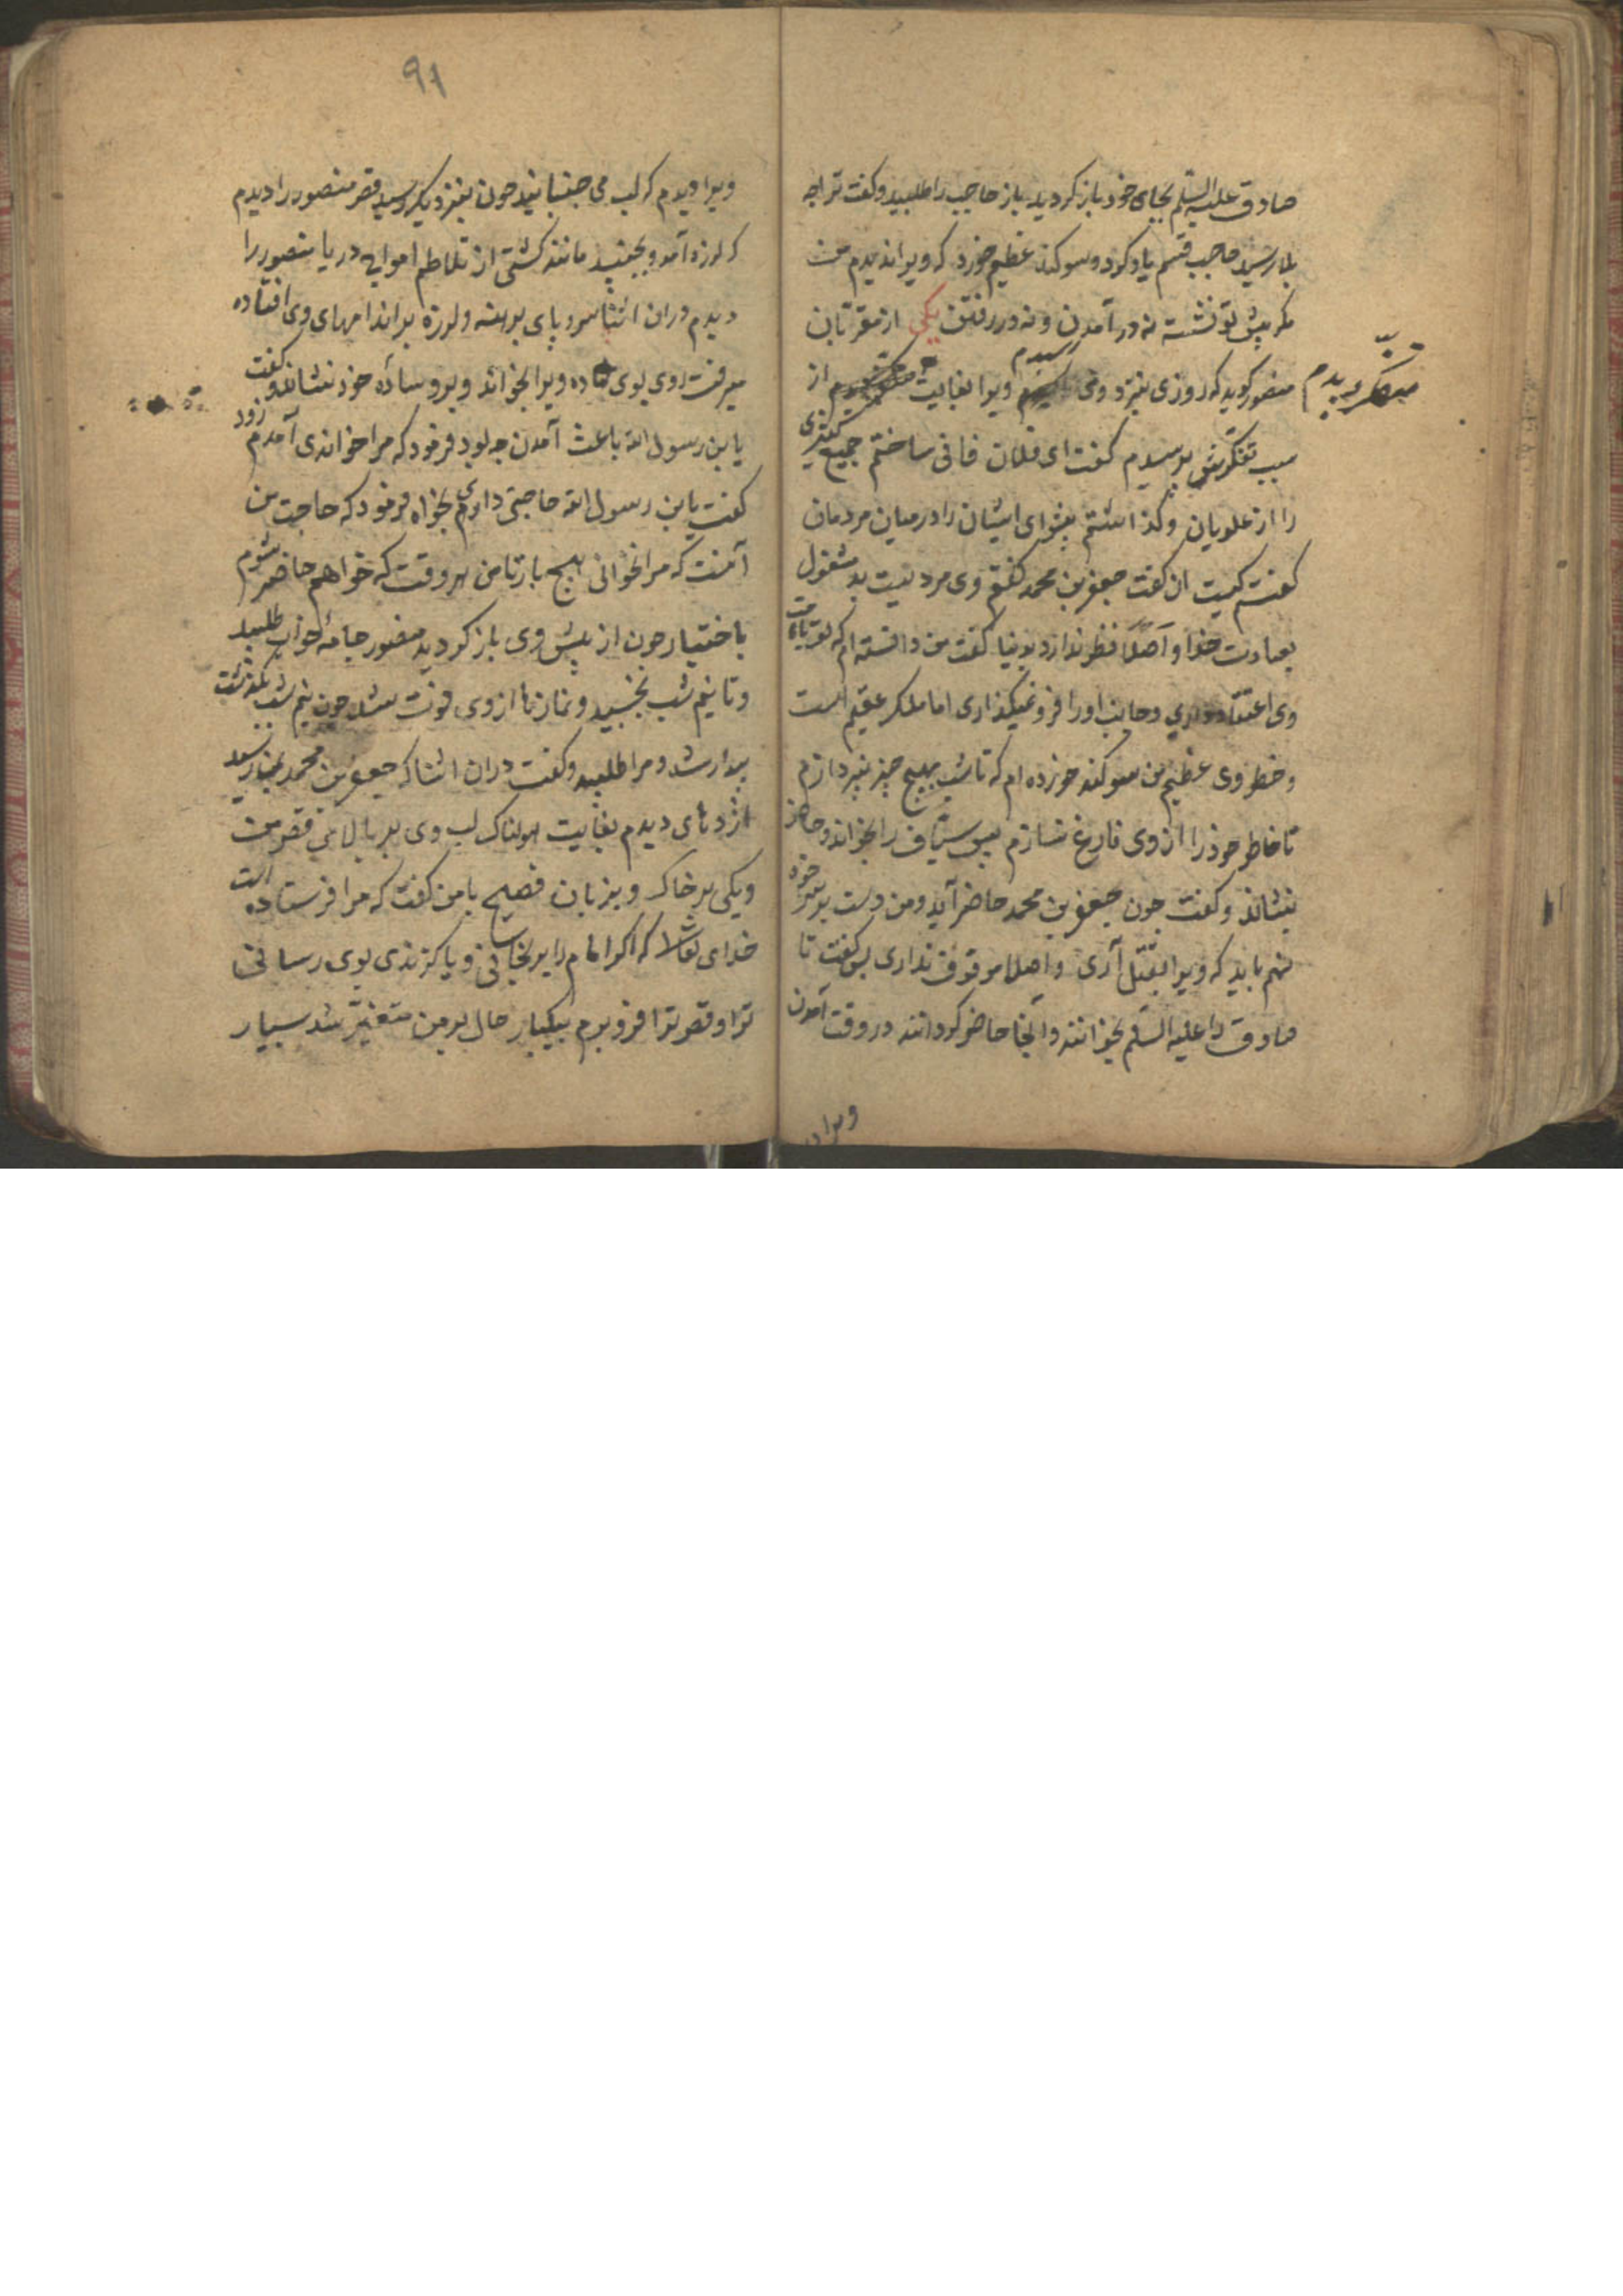 صادق علیه السلم بجای خود باز کردید باز حاجب را طلبید و کفت ترا چه
بلا رسید حاجب قسم یاد کرد و سوکند عظیم خورد که ویرا ندیدم من
مکر پیش تو نشسته نه در آمدن و نه در رفتن یکی از مقربان
منصور کوید که روزی بنزد وی رسیدم ویرا بغایت متفکر دیدم از
سبب تفکرش پرسیدم کفت ای فلان فانی ساختم جمع کثیری
را از علویان و کذاشتم پیشوای ایشان را در میان مردمان
کفتم کیست ان کفت جعفر بن محمد کفتم وی مردیست مشغول
بعبادت خدا و اصلا نظر ندارد بدنیا کفت من دانسته ام که تو بامامت
وی اعتقاد داری و جانب او را فرو نمیکذاری اما ملک عقیم است
و خطر وی عظیم من سوکند خورده ام که تا شب بهیچ چیز نپردازم
تا خاطر خود را از وی فارغ نسازم پس سیاف را بخواند و حاضر
بنشاند و کفت چون جعفر بن محمد حاضر آید و من دست بر سر خود
نهم باید که ویرا بقتل آری و اصلا موقوف نداری پس کفت تا
صادق را علیه السلم بخوانند و آنجا حاضر کردانند در وقت آمدن
ویرا د
۹۱
ویرا دیدم که لب می جنبانید چون بنزدیک رسید قصر منصور را دیدم
که لرزه آمد و بجنبید مانند کشتی از تلاطم امواج دریا منصور را
دیدم در ان اثنا سر و پای برهنه و لرزه بر اندامهای وی افتاده
میرفت روی بوی نهاده ویرا بخواند و برو سادۀ خود نشاند و کفت
یا بن رسول الله باعث آمدن چه بود فرمود که مرا خواندی آمدم زود
کفت یا بن رسول الله حاجتی داری بخواه فرمود که حاجت من
آنست که مرا نخوانی هیچ بار تا من هر وقت که خواهم حاضر شوم
باختیار چون از پیش وی باز کردید منصور جامۀ خواب طلبید
و تا نیم شب بخسبید و نمازها از وی فوت شد چون نیم شب بکذشت
بیدار شد و مرا طلبید و کفت در ان اثنا که جعفر بن محمد بنیاز رسید
اژدهای دیدم بغایت هولناک لب وی بر بالای قصر منست
و یکی بر خاک و بزبان فصیح با من کفت که مرا فرستاده است
خدای تعالی که اکر امام را برنجانی و یا کزندی بوی رسانی
ترا و قصر ترا فرو برم بیکبار حال بر من متغیر شد بسیار